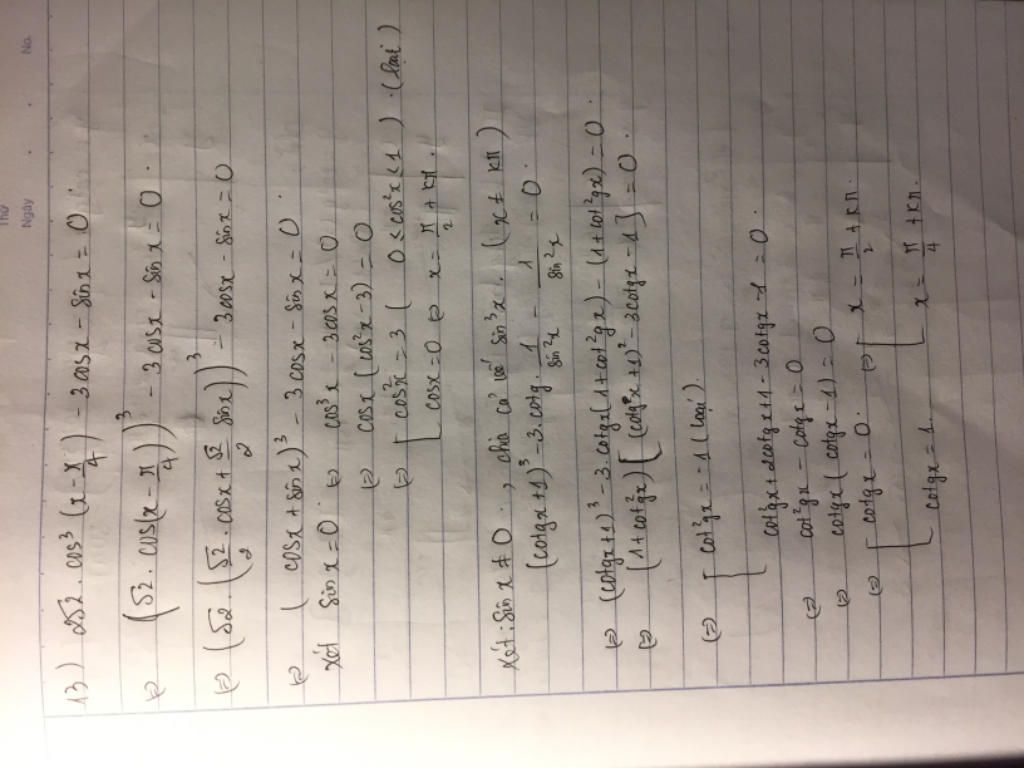 Thứ
Ngày
No.
13) 2√2 . cos³(x - π/4) - 3cosx - sinx = 0.
⇔ (√2 . cos(x - π/4))³ - 3cosx - sinx = 0.
⇔ (√2 . (√2/2 . cosx + √2/2 sinx))³ - 3cosx - sinx = 0
⇔ (cosx + sinx)³ - 3cosx - sinx = 0.
xét sinx = 0. ⇔ cos³x - 3cosx = 0
⇔ cosx (cos²x - 3) = 0
⇔ [ cos²x = 3 ( 0 < cos²x < 1 ) . (loại)
cosx = 0 ⇔ x = π/2 + kπ.
xét sinx ≠ 0 . , chia cả 2 vế sin³x. (x ≠ kπ)
(cotgx + 1)³ - 3.cotg 1/sin²x - 1/sin²x = 0.
⇔ (cotgx + 1)³ - 3.cotgx(1 + cot²gx) - (1 + cot²gx) = 0.
⇔ (1 + cot²gx) [ (cotgx + 1)² - 3cotgx - 1 ] = 0.
⇔ [ cot²gx = -1 (loại).
cot²gx + 2cotgx + 1 - 3cotgx - 1 = 0.
⇔ cot²gx - cotgx = 0
⇔ cotgx (cotgx - 1) = 0
⇔ [ cotgx = 0. ⇔ [ x = π/2 + kπ.
cotgx = 1. x = π/4 + kπ.